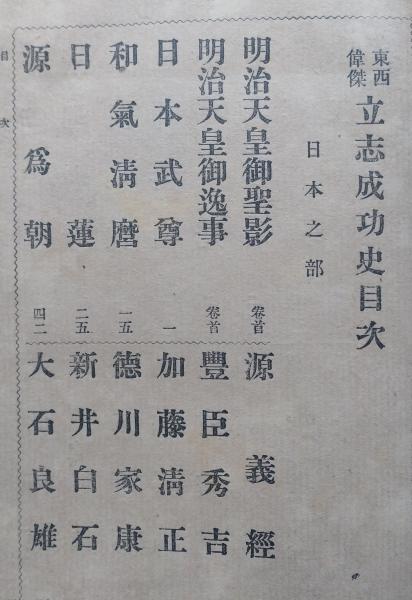 東西偉傑 立志成功史目次
日本之部
明治天皇御聖影 卷首
明治天皇御逸事 卷首
日本武尊 一
和氣淸麿 一五
日蓮 二五
源爲朝 四二
源義經
豐臣秀吉
加藤淸正
德川家康
新井白石
大石良雄
目次